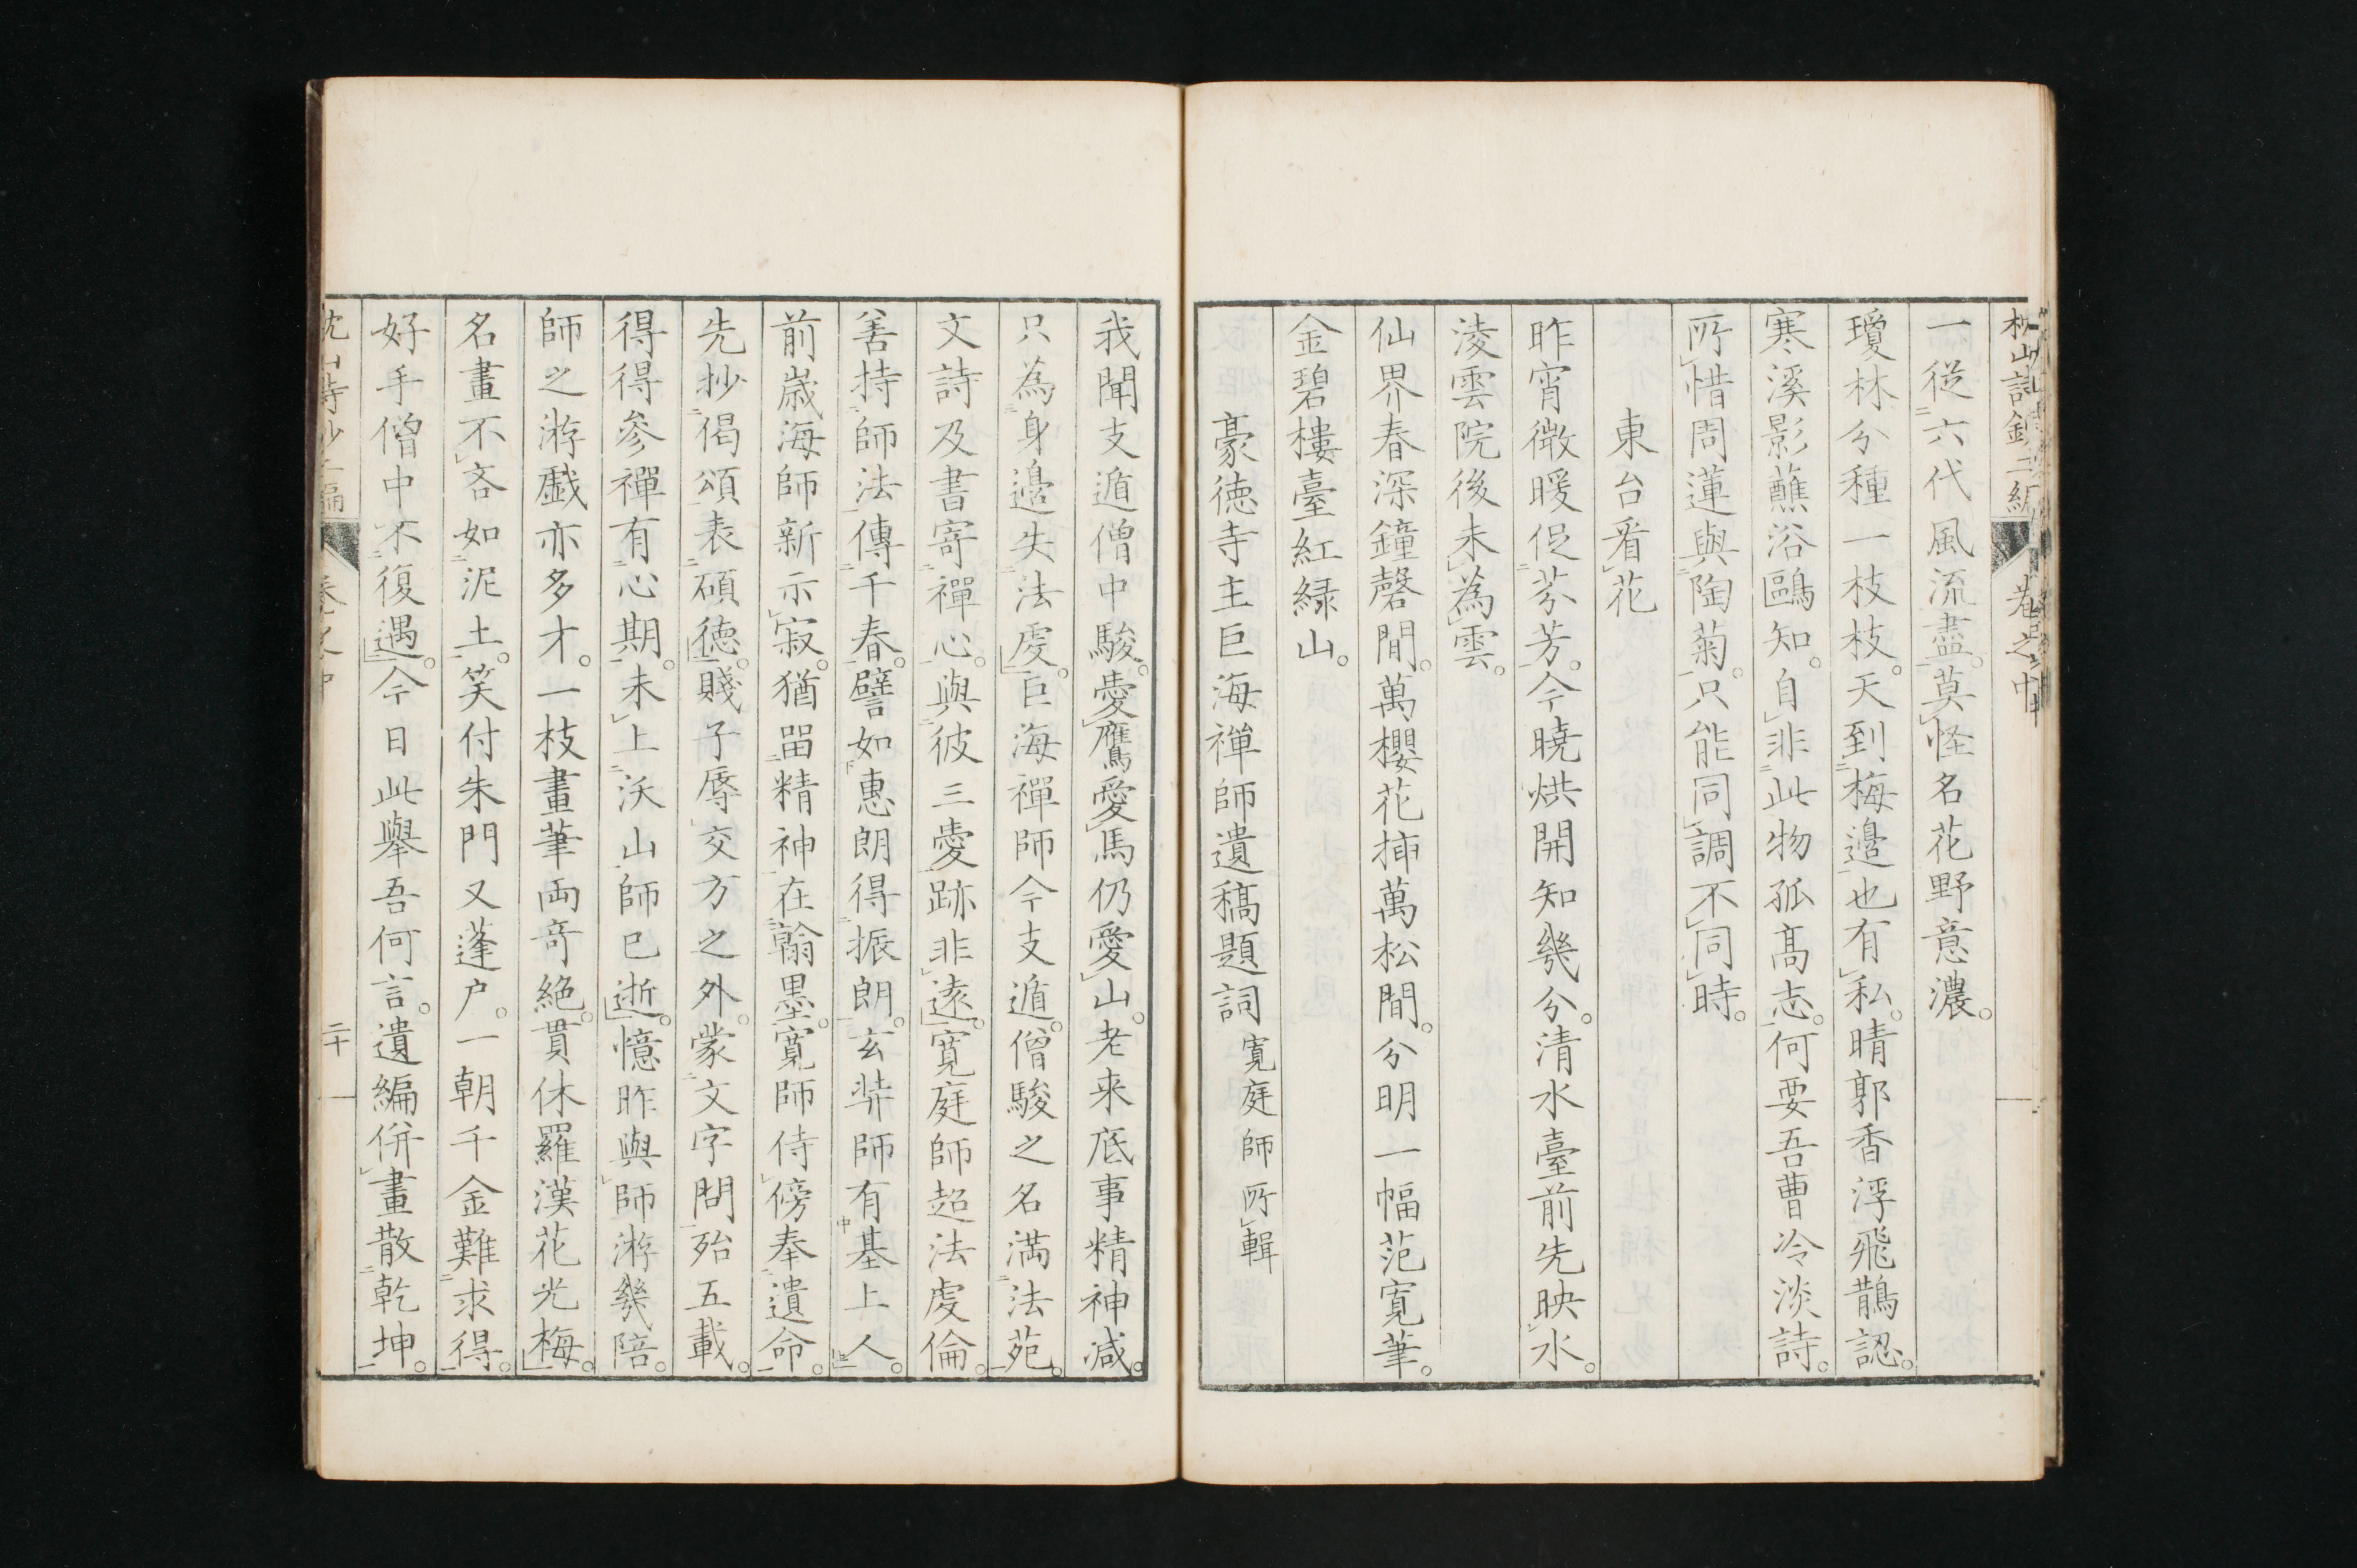 一從六代風流盡。莫怪名花野意濃。
瓊林分種一枝枝。天到梅邉也有私。晴郭香浮飛鵲認。
寒溪影蘸浴鷗知。自非此物孤髙志。何要吾曹冷淡詩。
所惜周蓮與陶菊。只能同調不同時。
東台看花
昨宵微暖促芬芳。今曉烘開知幾分。清水臺前先映水。
淩雲院後未為雲。
仙界春深鐘磬間。萬櫻花挿萬松間。分明一幅范寛筆。
金碧樓臺紅緑山。
豪徳寺主巨海禅師遺稿題詞 寛庭師所輯
我聞支遁僧中駿。愛鷹愛馬仍愛山。老来底事精神減。
只為身邉失法虔。巨海禪師今支遁。僧駿之名満法苑。
文詩及書寄禪心。與彼三愛跡非遠。寛庭師超法虔倫。
善持師法傳千春。譬如惠朗得振朗。玄弉師有基上人。
前歳海師新示寂。猶畱精神在翰墨。寛師侍傍奉遺命。
先抄偈頌表碩徳。賤子辱交方之外。蒙文字問殆五載。
得得参禪有心期。未上沃山師已逝。憶昨與師游幾陪。
師之游戯亦多才。一枝畫筆両奇絶。貫休羅漢花光梅。
名畫不吝如泥土。笑付朱門又蓬户。一朝千金難求得。
好手僧中不復遇。今日此擧吾何言。遺編併畫散乾坤。
二十